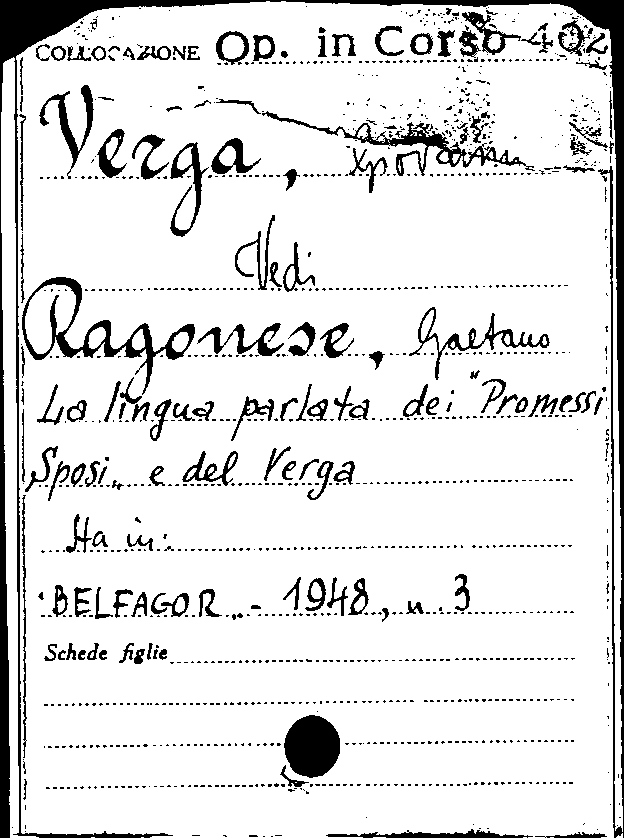 COLLOCAZIONE Op. in Corso 402
Verga,
Vedi
Ragonese, Gaetano
La lingua parlata dei "Promessi
Sposi„ e del Verga
Ha in:
"BELFAGOR„ - 1948, n. 3
Schede figlie